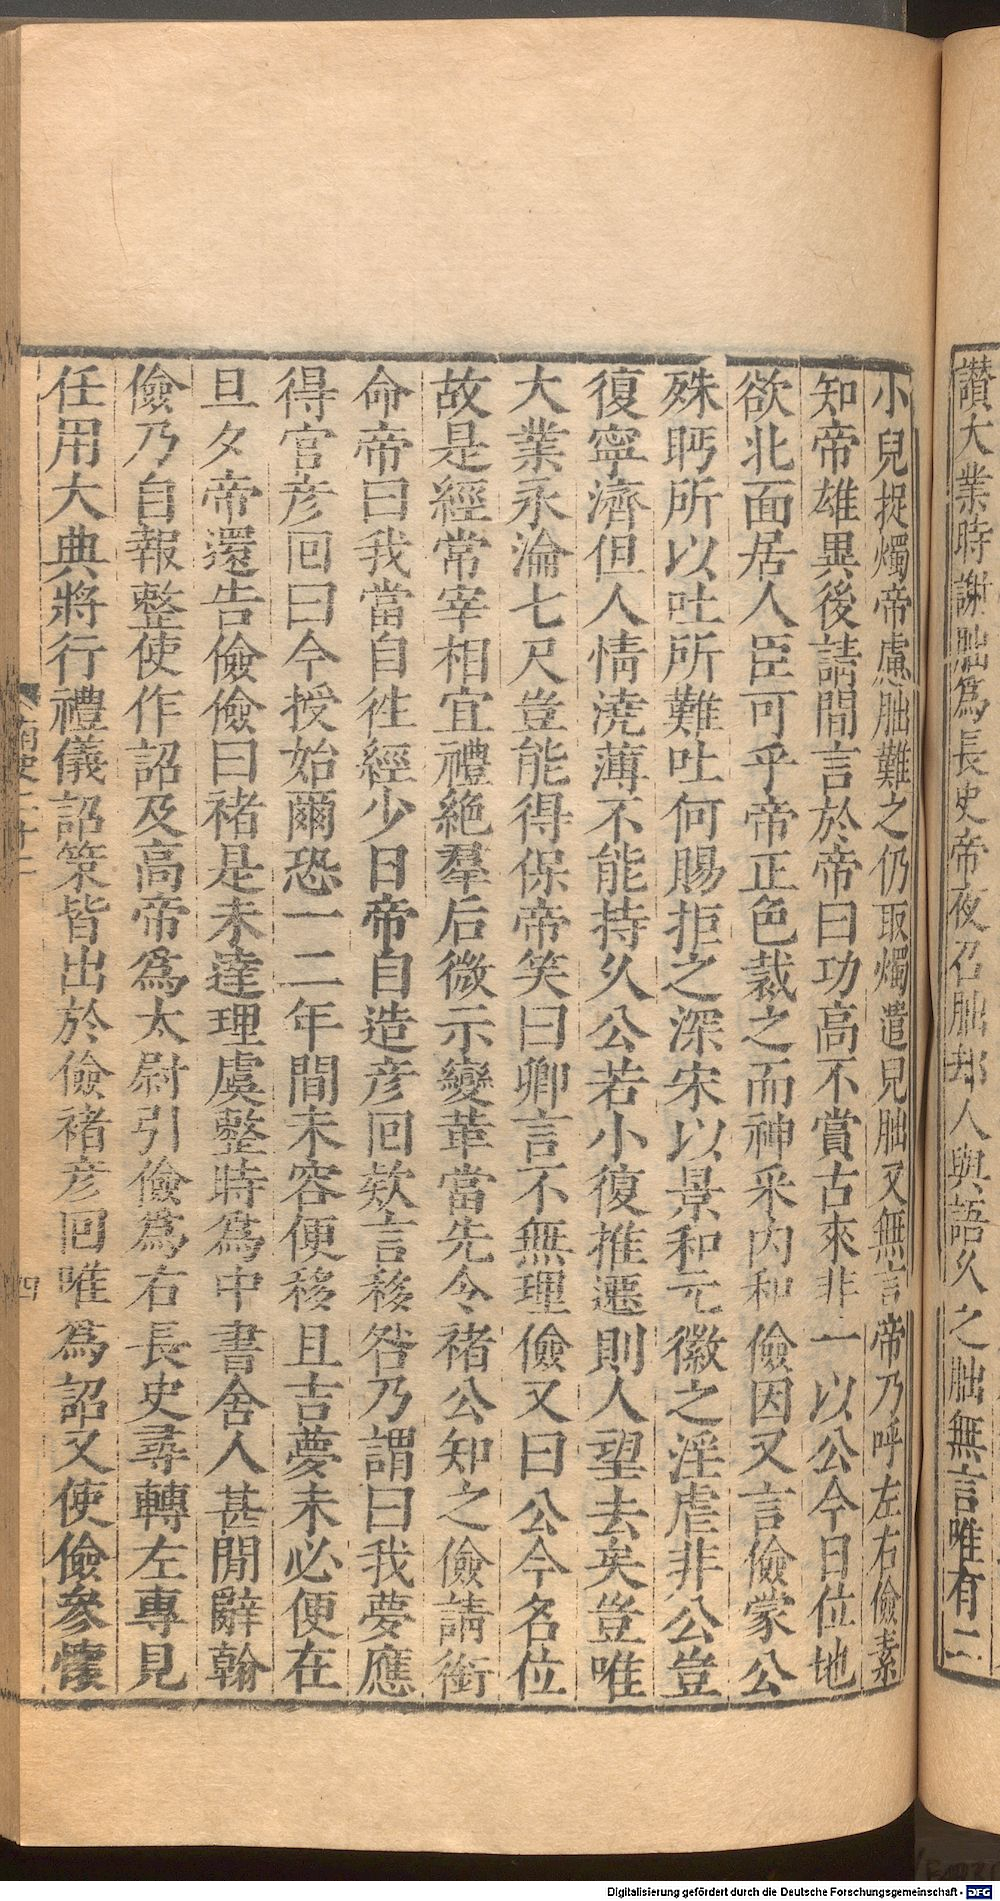 讚大業時謝朏爲長史帝夜召朏却人與語久之朏無言唯有二
小兒捉燭帝慮朏難之仍取燭遣兒朏又無言帝乃呼左右儉素
知帝雄異後請間言於帝曰功高不賞古來非一以公今日位地
欲北面居人臣可乎帝正色裁之而神采內和儉因又言儉蒙公
殊眄所以吐所難吐何賜拒之深宋以景和元徽之淫虐非公豈
復寧濟但人情澆薄不能持久公若小復推遷則人望去矣豈唯
大業永淪七尺豈能得保帝笑曰卿言不無理儉又曰公今名位
故是經常宰相宜禮絶羣后微示變革當先令褚公知之儉請銜
命帝曰我當自徃經少日帝自造彦回欵言移晷乃謂曰我夢應
得官彦回曰今授始爾恐一二年間未容便移且吉夢未必便在
旦夕帝還告儉儉曰褚是未達理虞整時爲中書舍人甚閒辭翰
儉乃自報整使作詔及高帝爲太尉引儉爲右長史尋轉左專見
任用大典將行禮儀詔策皆出於儉褚彦回唯爲詔又使儉參懷
四
Digitalisierung gefördert durch die Deutsche Forschungsgemeinschaft - DFG